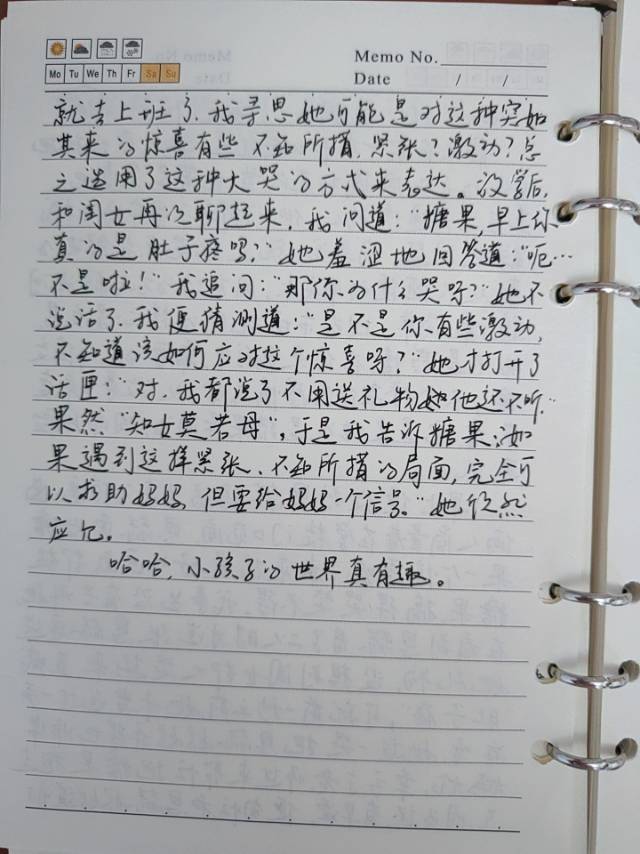 Memo No.
Mo Tu We Th Fr Sa Su
Date / /
就去上班了.我寻思她可能是对这种突如
其来的惊喜有些不知所措.紧张?激动?总
之选用了这种大哭的方式来表达。放学后,
和闺女再次聊起来,我问道:"糖果,早上你
真的是肚子疼吗?"她羞涩地回答道:"呃…
不是啦!"我追问:"那你为什么哭呀?"她不
说话了.我便猜测道:"是不是你有些激动,
不知道该如何应对这个惊喜呀?"她才打开了
话匣:"对.我都说了不用送礼物她还不听."
果然"知女莫若母",于是我告诉糖果:"如
果遇到这样紧张、不知所措的局面,完全可
以求助妈妈,但要给妈妈一个信号。"她欣然
应允。
哈哈,小孩子的世界真有趣。